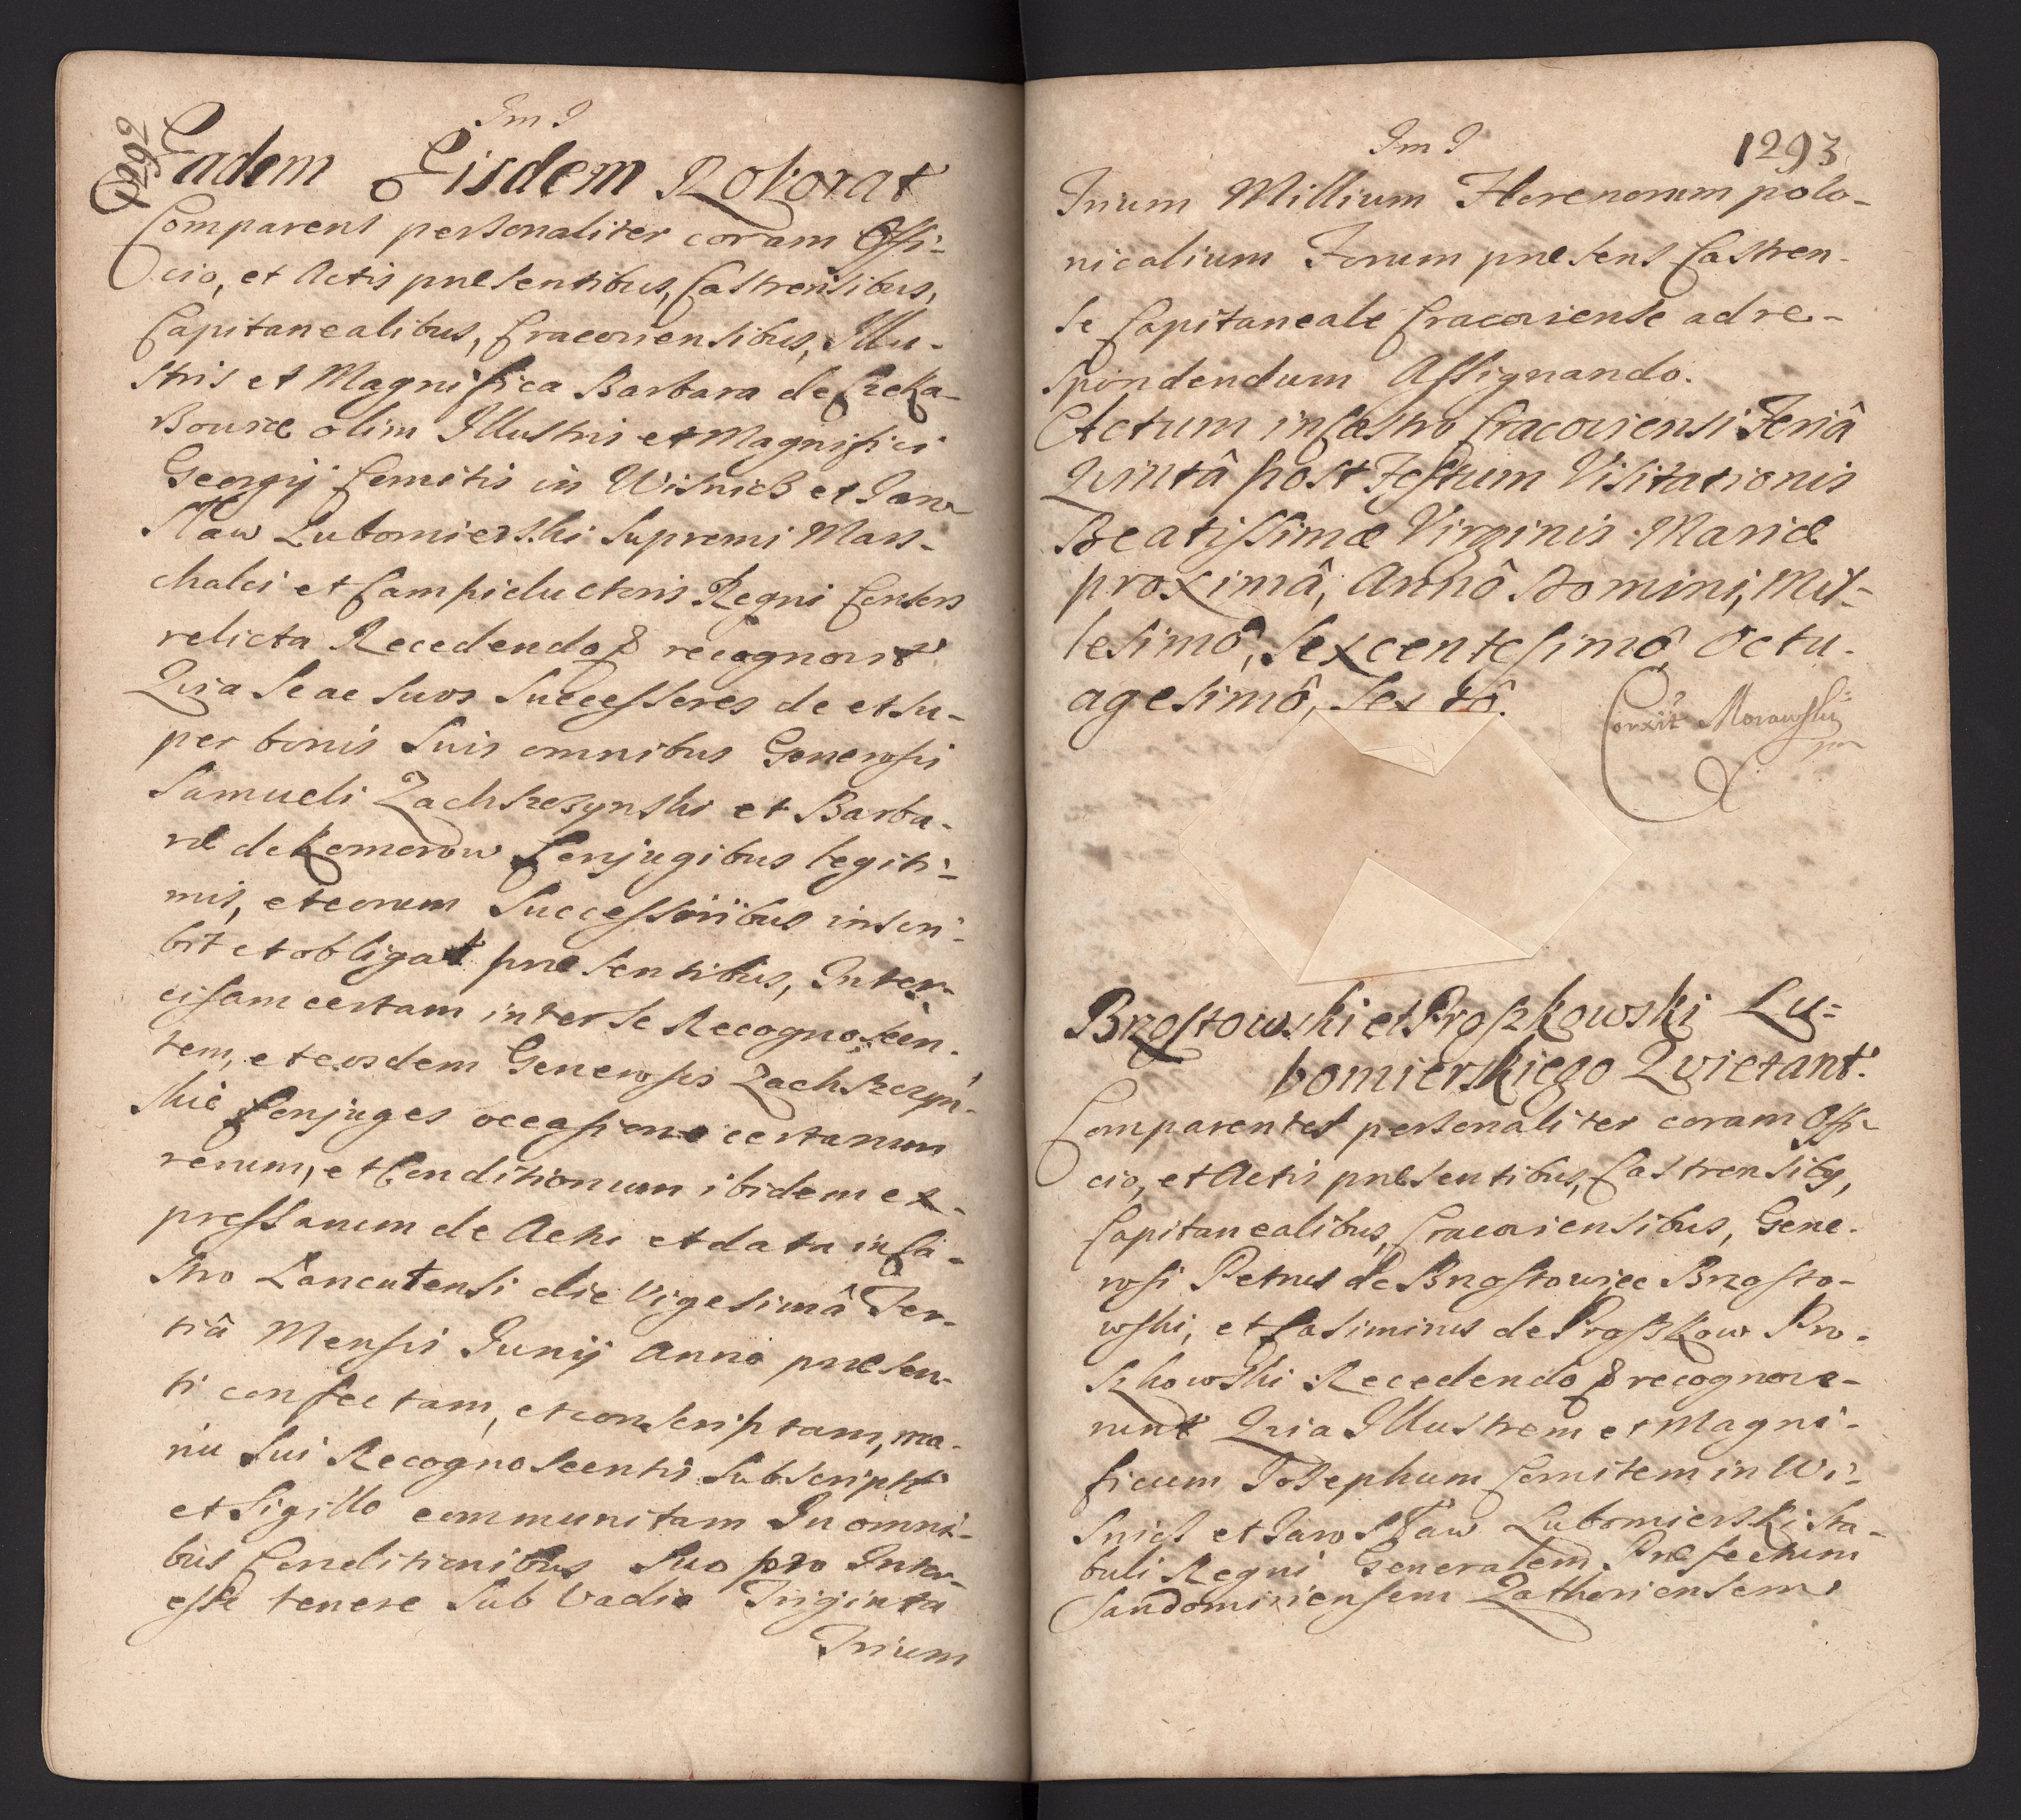 Im I
Eadem Eisdem Roborat
Comparens personaliter coram Offi-
cio, et Actis præsentibus, Castrensibus,
Capitanealibus, Cracoviensibus, Illu-
stris et Magnifica Barbara de
olim Illustris et Magnifici
Georgij Comitis in Wisnicz et Jaro
sław Lubomierski Supremi Mars-
chalci et Campiductoris Regni Consors
relicta Recedendo recognovit
Quia se ac suos Successores de et su-
per bonis suis omnibus Generosis
Samueli Zachszczynski et Barba-
ræ de Komorow Conjugibus legiti-
mis, et eorum Successoribus inscri-
bit et obligat præsentibus, Inter-
cisam certam inter se Recognoscen-
tem, et eosdem Generosos Zachszczyn-
skie Conjuges occasione certarum
rerum, et Conditionum ibidem ex-
pressarum de Actu et data in Ca-
stro Lancutensi die Vigesimâ Ter-
tiâ Mensis Junij Anno præsen-
ti confectam, et conscriptam, ma-
nu sui Recognoscentis subscriptâ
et Sigillo communitam In omni-
bus Conditionibus suo pro Inter-
esse tenere sub vadio Triginta
Trium
Im I
1293
Trium Millium Florenorum polo-
nicalium Forum præsens Castren-
se Capitaneale Cracoviense ad re-
spondendum Assignando.
Actum in Castro Cracoviensi Feriâ
Quintâ post Festum Visitationis
Beatissimæ Virginis Mariæ
proximâ, Annô Domini, Mil-
lesimô, Sexcentesimô Octu-
agesimô, Sextô.
Corxit Morawski
Brzostowski et Proszkowski Lu=
bomierskiego Quietant.
Comparentes personaliter coram Offi-
cio, et Actis præsentibus, Castrensibus,
Capitanealibus, Cracoviensibus, Gene-
rosi Petrus de Brzostowiec Brzosto-
wski, et Casimirus de Proszkow Pro-
szkowski Recedendo recognove-
runt Quia Illustrem et Magni-
ficum Josephum Comitem in Wi-
snicz et Jarosław Lubomierski sta-
buli Regni Generalem Præfectum
Sandomiriensem Zathoriensem